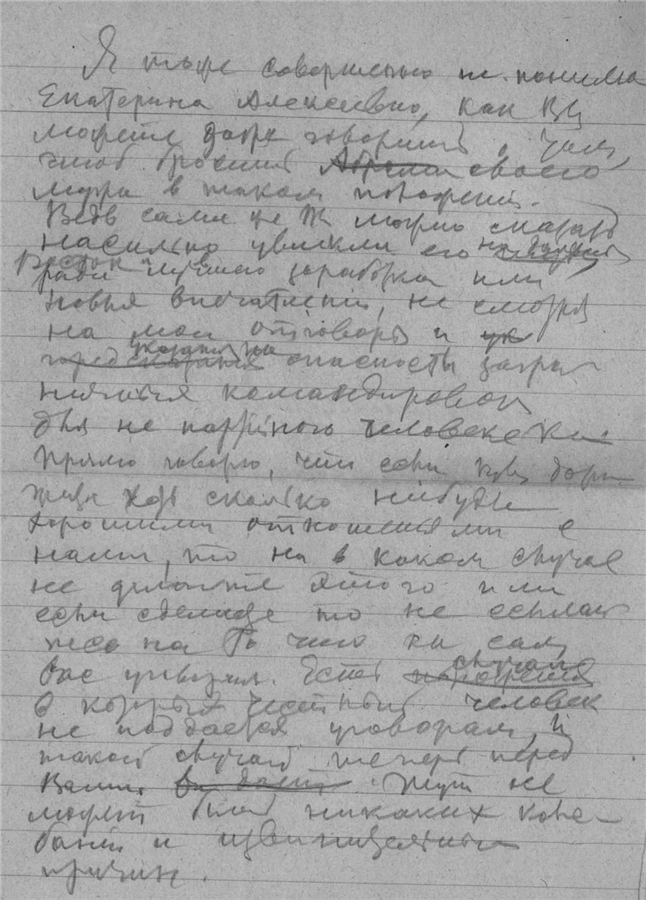 Я тоже совершенно не понимаю
Екатерина Алексеевна, как Вы
можете даже говорить о чем,
чтоб бросить своего
мужа в таком положении.
Ведь сами же Ж можно сказать
насильно увлекли его на Дальний
Восток ради лучшего заработка или
новых впечатлений, не смотря
на мои отговоры и
указания на опасность загра-
ничных командировок
для не партийного человека
прямо говорю, что если Вы доро-
жите хоть сколько нибудь
хорошими отношениями с
нами, то ни в каком случае
не делайте этого или
если сделаете то не ссылай-
тесь на то что он сам
Вас уговорил. Есть случаи
в которых честный человек
не поддается уговорам, и
такой случай теперь перед
Вами. Тут не
может быть никаких коле-
баний и извинительных
причин.